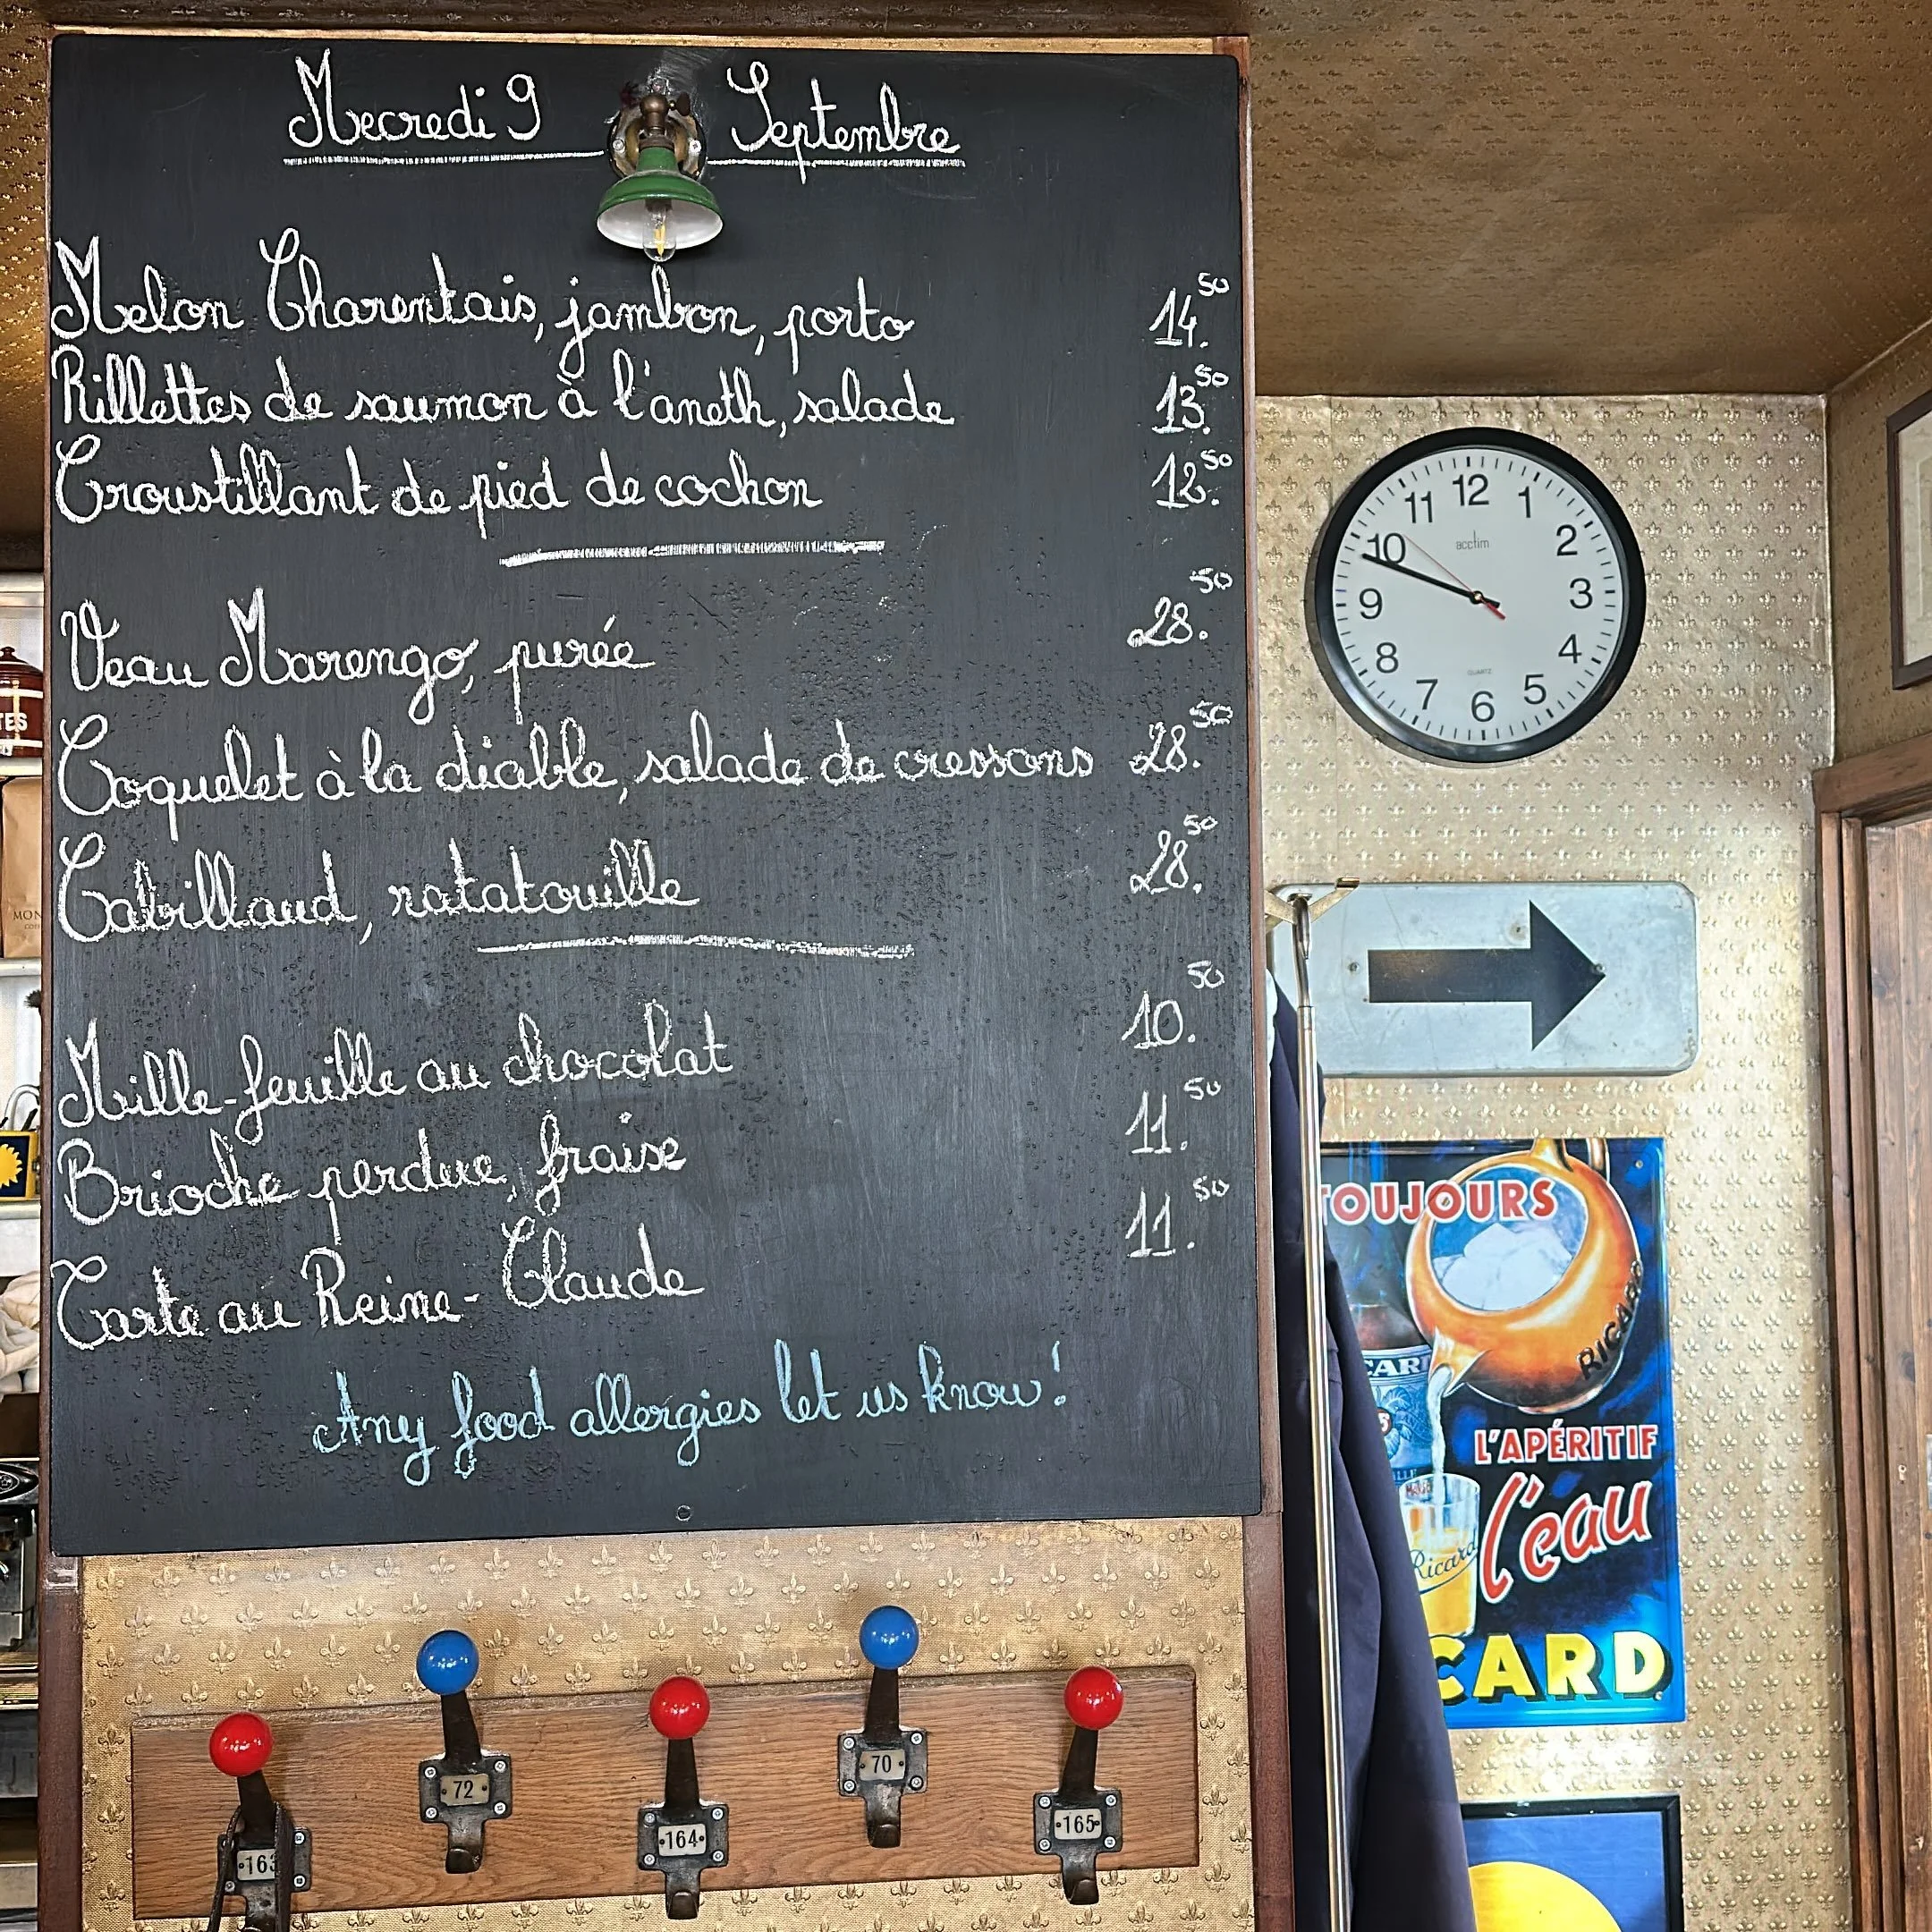 Mecredi 9 Septembre
Melon Charentais, jambon, porto 14.50
Rillettes de saumon à l'aneth, salade 13.50
Croustillant de pied de cochon 12.50
Veau Marengo, purée 28.50
Coquelet à la diable, salade de cressons 28.50
Cabillaud, ratatouille 28.50
Mille-feuille au chocolat 10.50
Brioche perdue, fraise 11.50
Tarte au Reine-Claude 11.50
Any food allergies let us know!
163
72
164
70
165
11 12 1
10 2
acctim
9 3
8 4
QUARTZ
7 6 5
TOUJOURS
RICARD
L'APÉRITIF
l'eau
Ricard
CARD